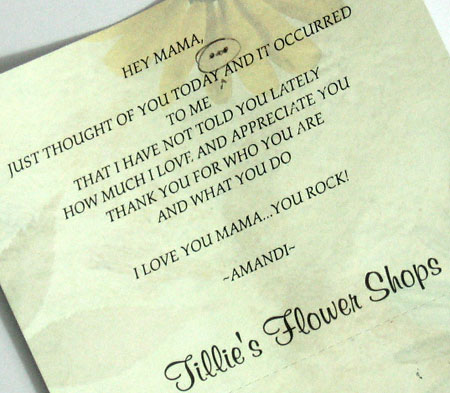 HEY MAMA,
JUST THOUGHT OF YOU TODAY AND IT OCCURRED
TO ME
THAT I HAVE NOT TOLD YOU LATELY
HOW MUCH I LOVE AND APPRECIATE YOU
THANK YOU FOR WHO YOU ARE
AND WHAT YOU DO
I LOVE YOU MAMA...YOU ROCK!
~AMANDI~
Tillie's Flower Shops